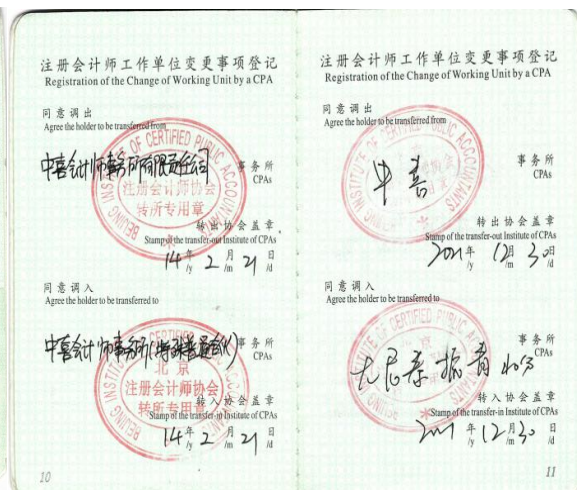 注册会计师工作单位变更事项登记
Registration of the Change of Working Unit by a CPA
同意调出
Agree the holder to be transferred from
中喜会计师事务所有限责任公司
事务所
CPAs
BEIJING INSTITUTE OF CERTIFIED PUBLIC ACCOUNTANTS
注册会计师协会
转所专用章
转出协会盖章
Stamp of the transfer-out Institute of CPAs
14年 2月 21日
/y /m /d
同意调入
Agree the holder to be transferred to
中喜会计师事务所(特殊普通合伙)
事务所
CPAs
北京
注册会计师协会
转所专用章
转入协会盖章
Stamp of the transfer-in Institute of CPAs
14年 2月 21日
/y /m /d
10
注册会计师工作单位变更事项登记
Registration of the Change of Working Unit by a CPA
同意调出
Agree the holder to be transferred from
中喜
事务所
CPAs
转出协会盖章
Stamp of the transfer-out Institute of CPAs
2021年 12月 30日
/y /m /d
同意调入
Agree the holder to be transferred to
事务所
CPAs
转入协会盖章
Stamp of the transfer-in Institute of CPAs
2021年 12月 30日
/y /m /d
11